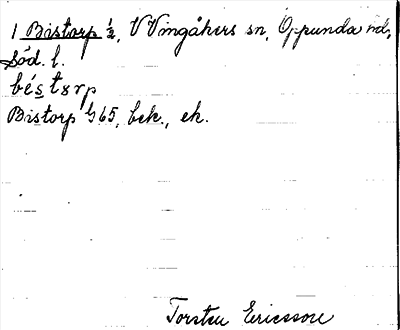 1 Bistorp ½, V Vingåkers sn, Oppunda hd,
Söd. l.
béstɤrp
Bistorp G65, bek., ek.
Torsten Ericsson